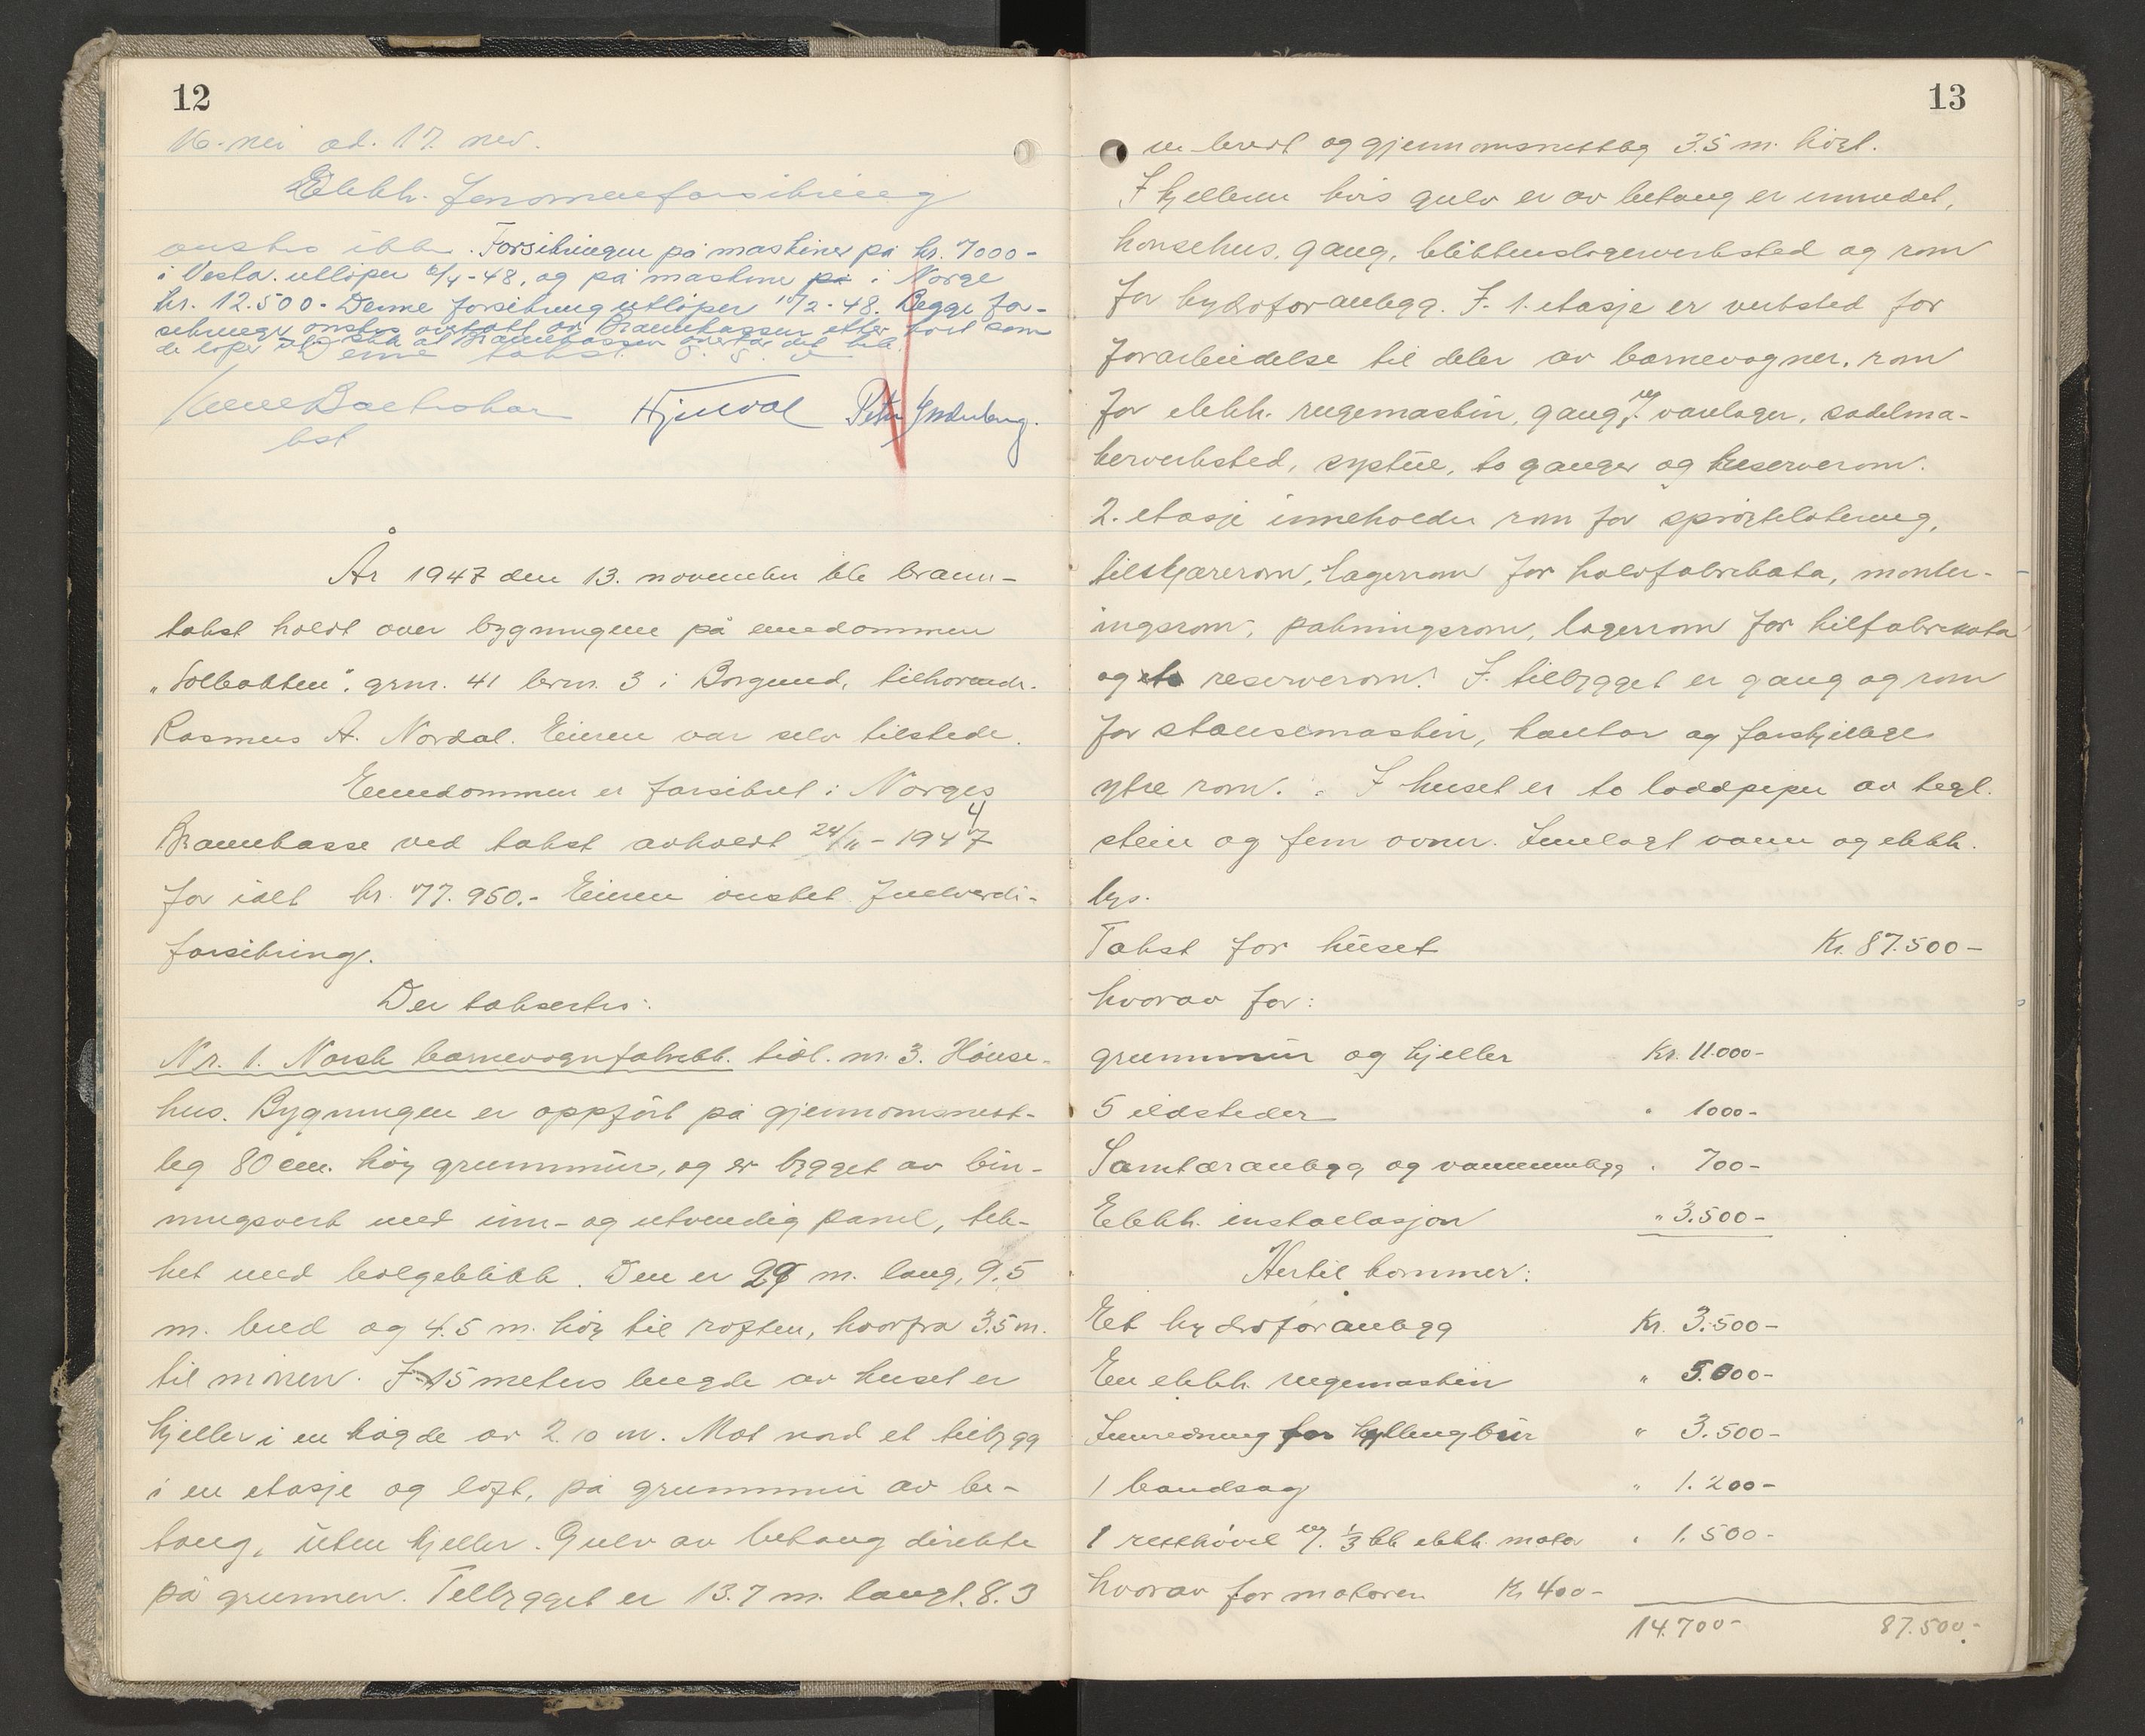 12
16. nei ad. 17. nei.
Elekt. fenomenforsikring
ønskes ikke. Forsikringen på maskiner på kr. 7000-
i Vesta utløper 6/4-48, og på maskiner på i Norge
kr. 12.500- Denne forsikring utløper 10/2-48. Begge for-
sikringer ønskes overtatt av Brannkassen etter hvert som
de løper ut
Hjelvol Peter
År 1947 den 13. november ble brann-
takst holdt over bygningene på eiendommen
"Solbakken". grm. 41 brm. 3 i Borgund, tilhørende.
Rasmus A. Nordal. Eieren var selv tilstede.
Eiendommen er forsikret i Norges
Brannkasse ved takst avholdt 24/11-1944
for ialt kr. 77.950.- Eieren ønsket fullverdi-
forsikring.
Der taksertes:
Nr. 1. Norsk barnevognfabrikk. tidl. nr. 3. Hönse-
hus. Bygningen er oppfört på gjennomsnitt-
leg 80 cm. höy grunnmur, og er bygget av bin-
ningsverk med inn- og utvendig panel, tek-
ket med bölgeblikk. Den er 29 m. lang, 9.5
m. bred og 4.5 m. höy til raften, hvorfra 3.5 m.
til mönen. I 15 meters lengde av huset er
kjeller i en högde av 2.10 m. Mot nord et tilbygg
i en etasje og loft, på grunnmur av be-
tong, uten kjeller. Gulv av betong direkte
på grunnen. Tilbygget er 13.7 m. langt. 8.3
13
m bredt og gjennomsnittleg 3.5 m. högt.
I kjelleren hvis gulv er av betong er innredet,
hönsehus, gang, blikkenslagerverksted og rom
for hydroforanlegg. I 1. etasje er verksted for
forarbeidelse til deler av barnevogner, rom
for elekk. rugemaskin, gang, og varelager, sadelma-
kerverksted, systue, to ganger og reserverom.
2. etasje inneholder rom for sprøytelakering,
tilskjærerom, lagerrom for halvfabrikata, monter-
ingsrom, pakningsrom, lagerrom for helfabrikata
og to reserverom. I tilbygget er gang og rom
for stansemaskin, kontor og forskjellige
ytre rom. I huset er to loddpiper av tegl.
stein og fem ovner. Innlagt vann og elekk.
lys.
Takst for huset Kr. 87.500-
hvorav for:
grunnmur og kjeller Kr. 11.000-
5 ildsteder " 1000-
Sanitæranlegg og vannanlegg " 700-
Elekk. installasjon " 3.500-
Hertil kommer:
Et hydroforanlegg Kr. 3.500-
En elekk. rugemaskin " 5.000-
Innredning for kyllingbur " 3.500-
1 bandsag " 1.200-
1 retthövel m/. 1/3 hk elekk. motor " 1.500-
hvorav for motoren Kr 400-
14.700- 87.500-